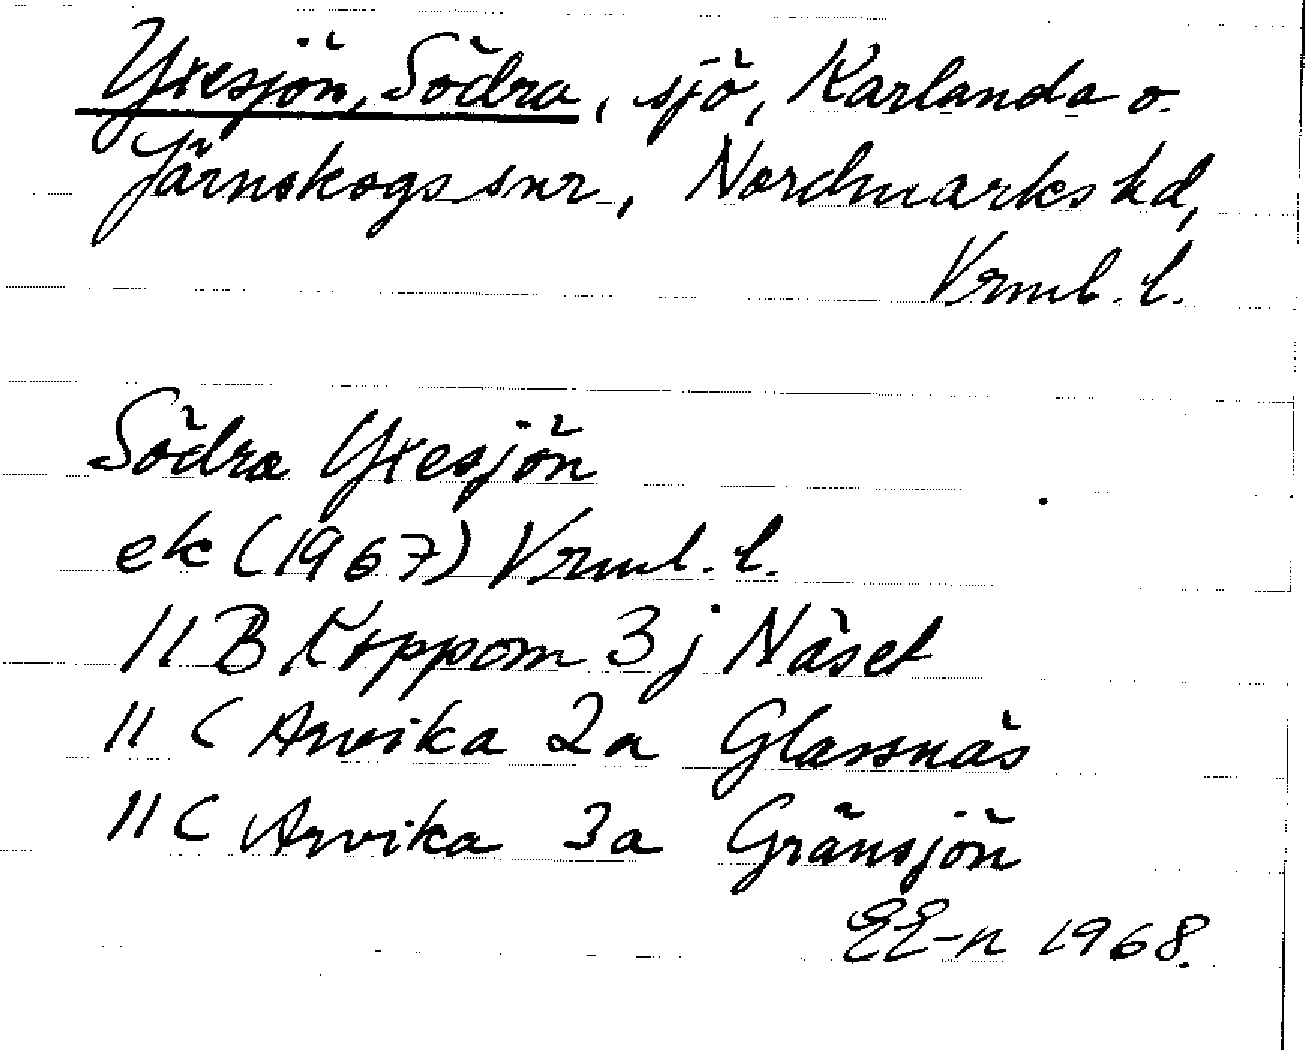 Yxesjön, Södra, sjö, Karlanda o.
Järnskogs snr, Nordmarks hd,
Vrml. l.
Södra Yxesjön
ek (1967) Vrml. l.
11 B Koppom 3 j Näset
11 C Arvika 2a Glassnäs
11 C Arvika 3a Gränsjön
EE-n 1968.